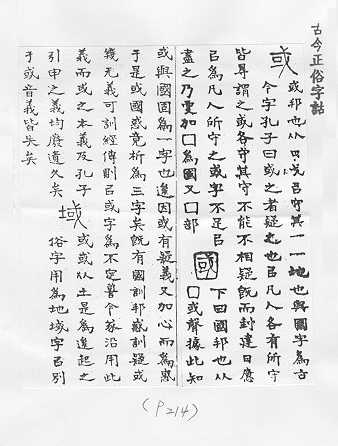 古今正俗字詁
或
或邦也从囗戈㠯守其一一地也與國字為古
今字孔子曰或之者疑之也㠯凡人各有所守
皆得謂之或各守其守不能不相疑既而封建日廣
㠯為凡人所守之或字不足㠯
盡之乃更加囗為國又囗部
國
下曰國邦也从
囗或聲據此知
或與國固為一字也因或有疑義又加心而為惑
于是或國惑竟析為三字矣既有國訓邦惑訓疑或
幾无義可訓經傳則㠯或字為不定今沿用此
義而或之本義及孔子
引申之義均廢遺久矣
域
或或从土是為後起之
俗字用為地域字㠯別
于或音義皆失矣
(P214)